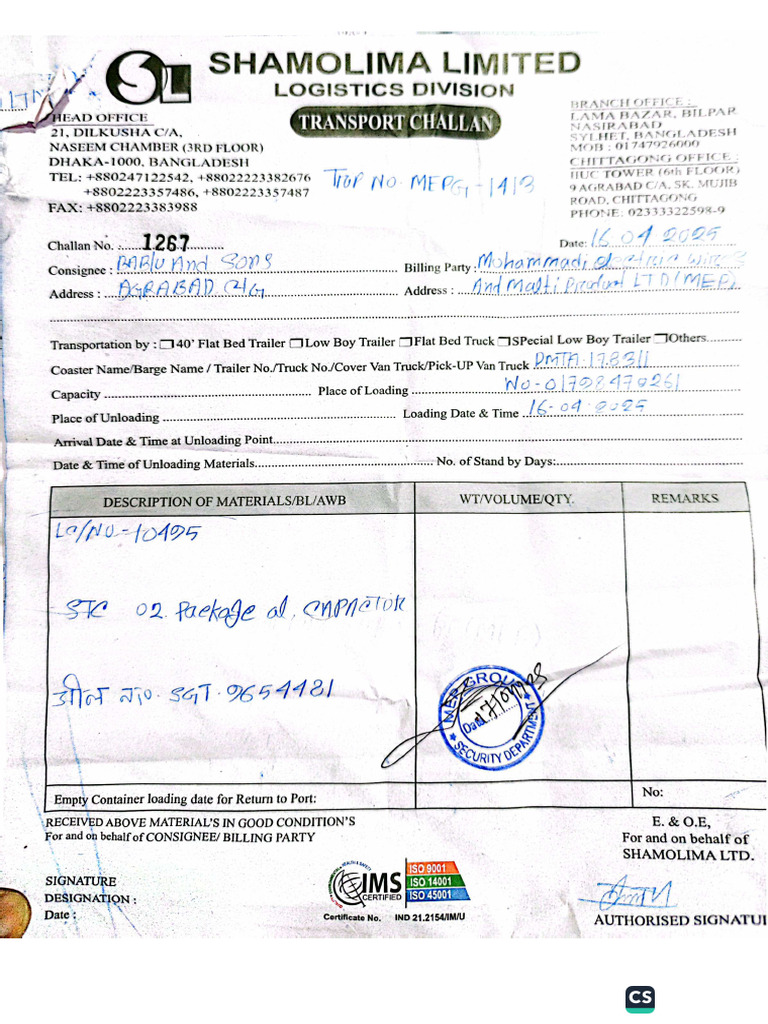 SL
SHAMOLIMA LIMITED
LOGISTICS DIVISION
TRANSPORT CHALLAN
HEAD OFFICE
21, DILKUSHA C/A,
NASEEM CHAMBER (3RD FLOOR)
DHAKA-1000, BANGLADESH
TEL: +880247122542, +88022223382676
+88022223357486, +88022223357487
FAX: +8802223383988
BRANCH OFFICE :
LAMA BAZAR, BILPAR
NASIRABAD
SYLHET, BANGLADESH
MOB : 01747926000
CHITTAGONG OFFICE :
HUC TOWER (6th FLOOR)
9 AGRABAD C/A, SK. MUJIB
ROAD, CHITTAGONG
PHONE: 02333322598-9
Trip NO. MEPG-1413
Challan No. : 1267
Date: 16 04 2025
Consignee : BABLU And SONS
Billing Party : Mohammadi electric wires
Address : AGRABAD C/G
Address : And Malti Product LTD (MEP)
Transportation by : 40' Flat Bed Trailer Low Boy Trailer Flat Bed Truck SPecial Low Boy Trailer Others
Coaster Name/Barge Name / Trailer No./Truck No./Cover Van Truck/Pick-UP Van Truck DMTA-178311
Capacity Place of Loading NO-01728470261
Place of Unloading Loading Date & Time 16-04-2025
Arrival Date & Time at Unloading Point
Date & Time of Unloading Materials No. of Stand by Days:
DESCRIPTION OF MATERIALS/BL/AWB WT/VOLUME/QTY. REMARKS
LC/NO-10495
STC 02. Package al, CAPACTOR
সীল নং. SGT. 9654481
MEP GROUP
Date
SECURITY DEPARTMENT
Empty Container loading date for Return to Port: No:
RECEIVED ABOVE MATERIAL'S IN GOOD CONDITION'S
For and on behalf of CONSIGNEE/ BILLING PARTY
E. & O.E,
For and on behalf of
SHAMOLIMA LTD.
SIGNATURE
DESIGNATION :
Date :
IMS
CERTIFIED
ISO 9001
ISO 14001
ISO 45001
Certificate No. IND 21.2154/IM/U
AUTHORISED SIGNATU
CS